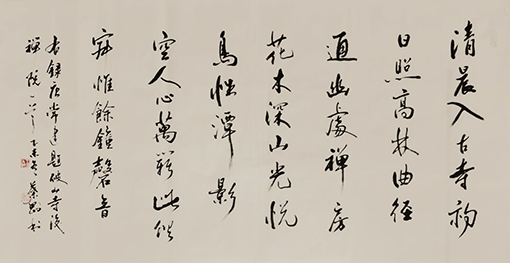 清晨入古寺初
日照高林曲径
通幽處禅房
花木深山光悦
鳥性潭影
空人心萬籟此俱
寂惟餘鐘磬音
右錄唐常建題破山寺後
禅院一首 乙未